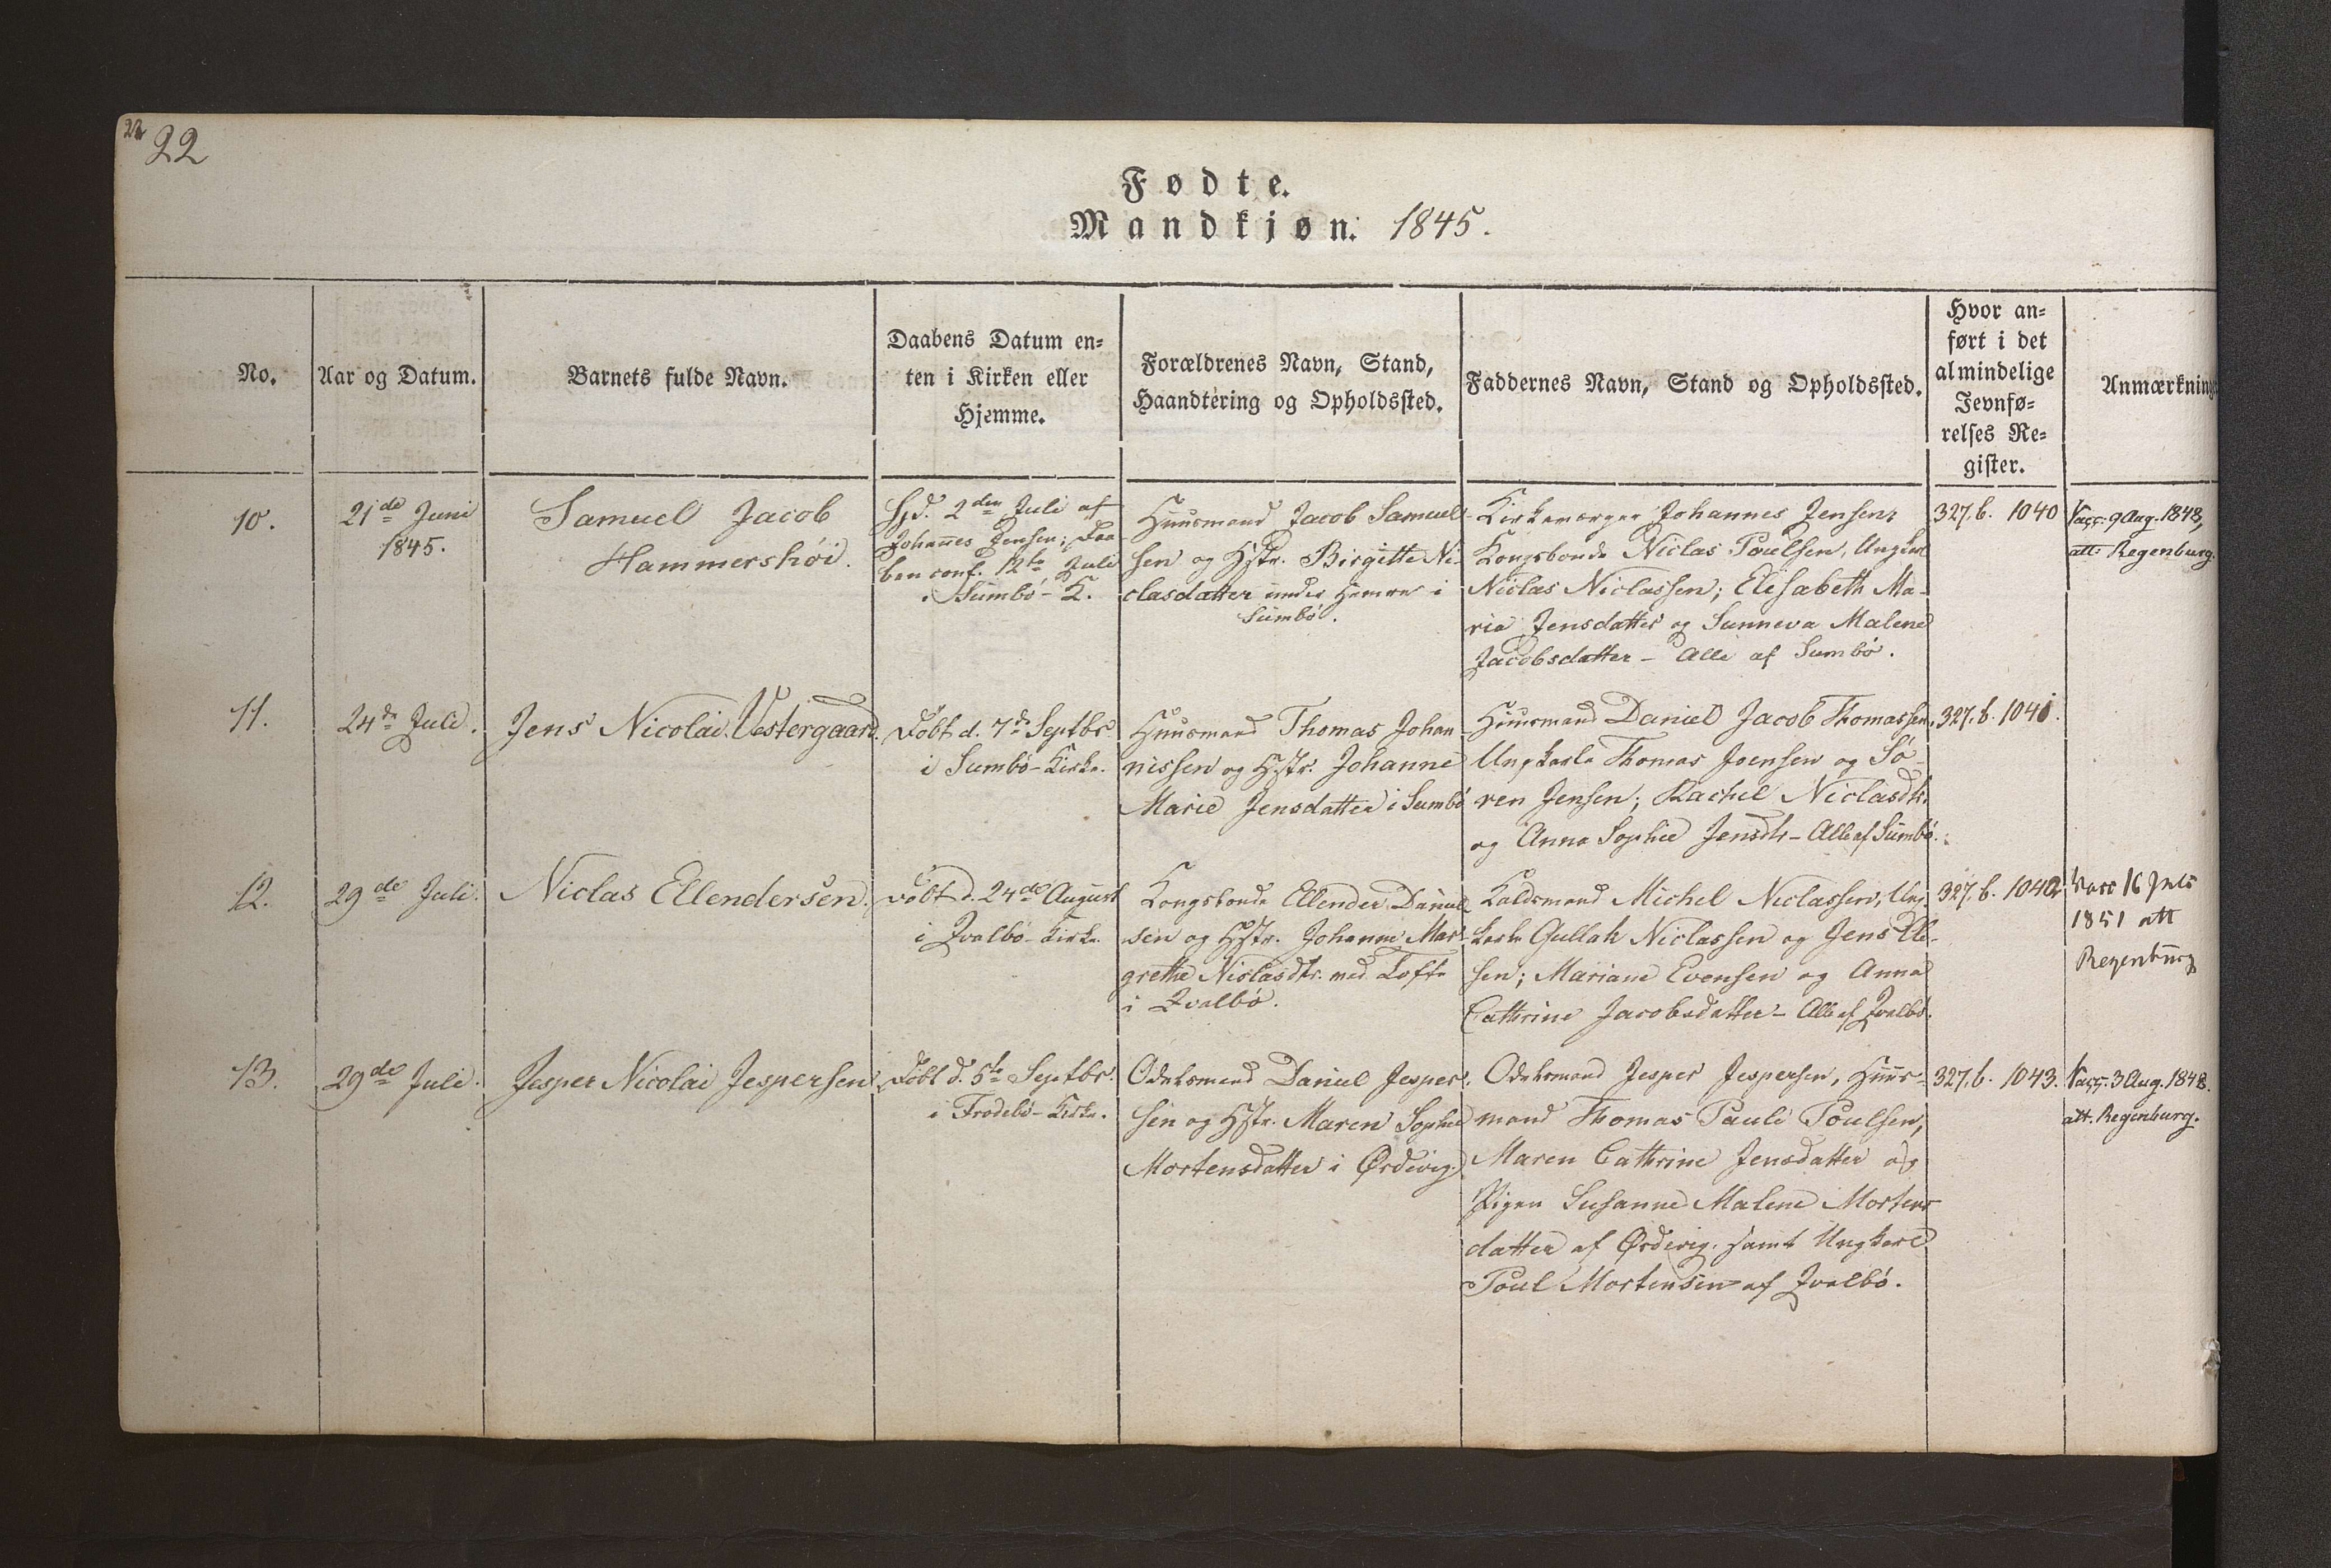 22
22
Fødte.
Mandkjøn. 1845.
No.
Aar og Datum.
Barnets fulde Navn.
Daabens Datum en-
ten i Kirken eller
Hjemme.
Forældrenes Navn, Stand,
Haandtéring og Opholdssted.
Faddernes Navn, Stand og Opholdssted.
Hvor an-
ført i det
almindelige
Jevnfø-
relses Re-
gister.
Anmærkning
10.
21de Juni
1845.
Samuel Jacob
Hammershöi.
Hjd. 2den Juli af
Johannes Jensen; Daa-
ben conf. 12te Juli
i Sumbö-K.
Huusmand Jacob Samuel-
sen og Hstr. Birgitte Ni-
clasdatter under Hamren i
Sumbö.
Kirkeværger Johannes Jensen,
Kongsbonde Niclas Poulsen, Ungkarl
Niclas Niclassen; Elisabeth Ma-
ria Jensdatter og Sunneva Malene
Jacobsdatter - Alle af Sumbö.
327. b. 1040
Vacc. 9 Aug. 1848,
att: Regenburg.
11.
24de Juli.
Jens Nicolai Vestergaard.
Döbt d. 7de Septbr.
i Sumbö-Kirke.
Huusmand Thomas Johan-
nissen og Hstr. Johanne
Marie Jensdatter i Sumbö
Huusmand Daniel Jacob Thomassen,
Ungkarle Thomas Joensen og Sö-
ren Jensen; Rachel Niclasdtr.
og Anna Sophie Jensdtr - Alle af Sumbö.
327. b. 1041.
12.
29de Juli.
Niclas Ellendersen.
Döbt d. 24de August
i Qvalbö-Kirke.
Kongsbonde Ellender Daniel-
sen og Hstr. Johanne Mar-
grethe Niclasdtr. ved Tofte
i Qvalbö.
Kaldsmand Michel Niclassen, Ung-
karle Gullak Niclassen og Jens Ole-
sen; Mariane Evensen og Anna
Cathrine Jacobsdatter - Alle af Qvalbö.
327. b. 1042
Vacc 16 Juli
1851 att
Regenburg
13.
29de Juli.
Jesper Nicolai Jespersen
Döbt d. 5te Septbr.
i Frodebö-Kirke.
Odelsmand Daniel Jesper-
sen og Hstr. Maren Sophie
Mortensdatter i Ørdevig.
Odelsmand Jesper Jespersen, Huus-
mand Thomas Pauli Poulsen,
Maren Cathrine Jensdatter og
Pigen Susanne Malene Mortens-
datter af Ørdevig. samt Ungkarl
Poul Mortensen af Qvalbö.
327. b. 1043.
Vacc. 3 Aug. 1848.
att. Regenburg.